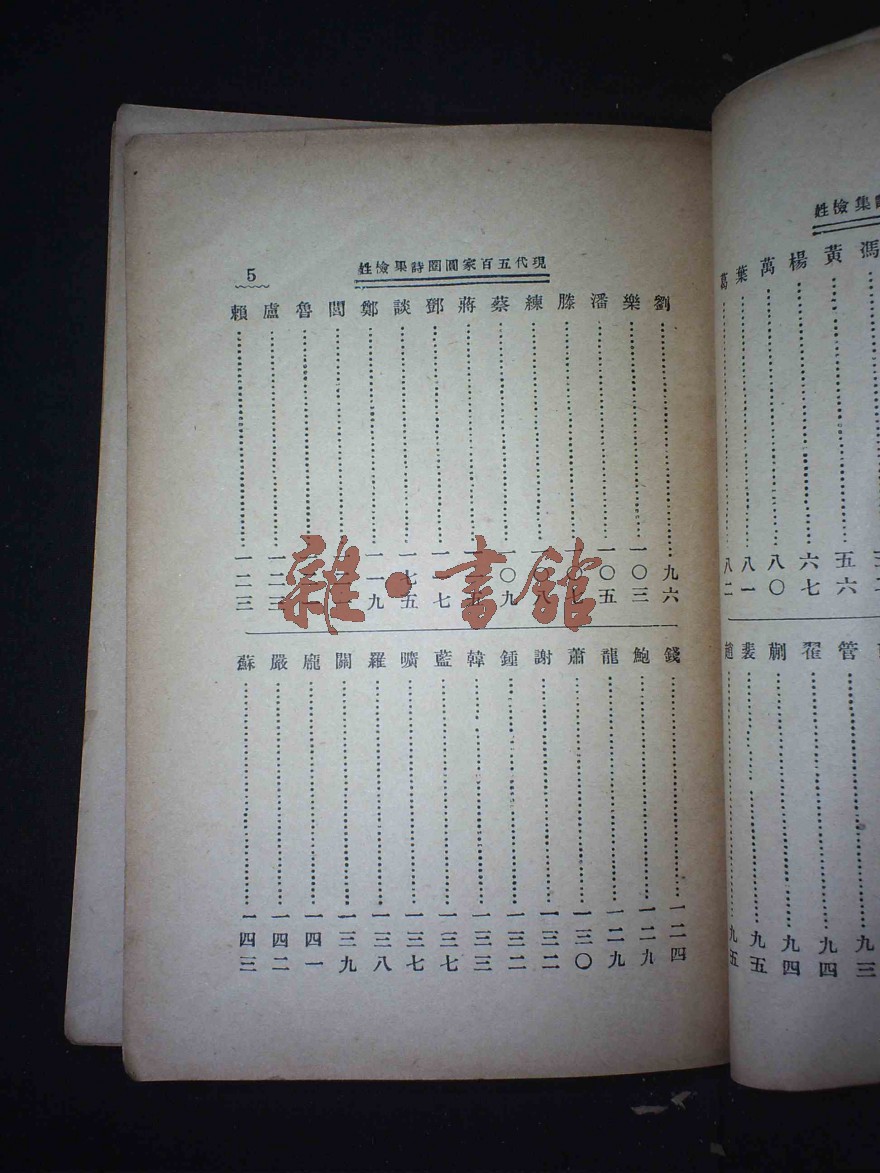 現代五百家圍詩集檢姓
5
劉 九六
樂 一〇三
潘 一〇五
滕
練 一〇八
蔡 一〇九
蔣
鄧 一一七
談 一七五
鄭 一一九
閻
魯
盧 一二
賴 一二三
錢 一二四
鮑 一二九
龍 一二九
蕭 一三〇
謝 一三二
鍾 一三二
韓 一三三
藍 一三七
曠 一三七
羅 一三八
關 一三九
龐 一四一
嚴 一四二
蘇 一四三
集檢姓
馮
黃 五六
楊 六七
萬 八〇
葉 八一
葛 八二
九三
管 九四
翟 九四
蒯 九四
裴 九五
趙 九五
雜·書館